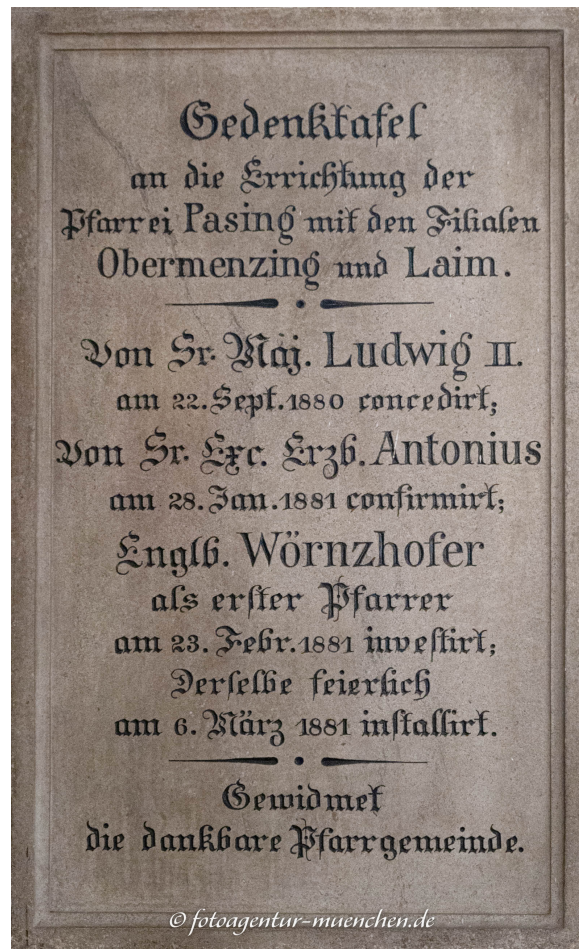 Gedenktafel
an die Errichtung der
Pfarrei Pasing mit den Filialen
Obermenzing und Laim.
Von Sr. Maj. Ludwig II.
am 22. Sept. 1880 concedirt;
Von Sr. Exc. Erzb. Antonius
am 28. Jan. 1881 confirmirt;
Englb. Wörnzhofer
als erster Pfarrer
am 23. Febr. 1881 investirt;
Derselbe feierlich
am 6. März 1881 installirt.
Gewidmet
die dankbare Pfarrgemeinde.
© fotoagentur-muenchen.de